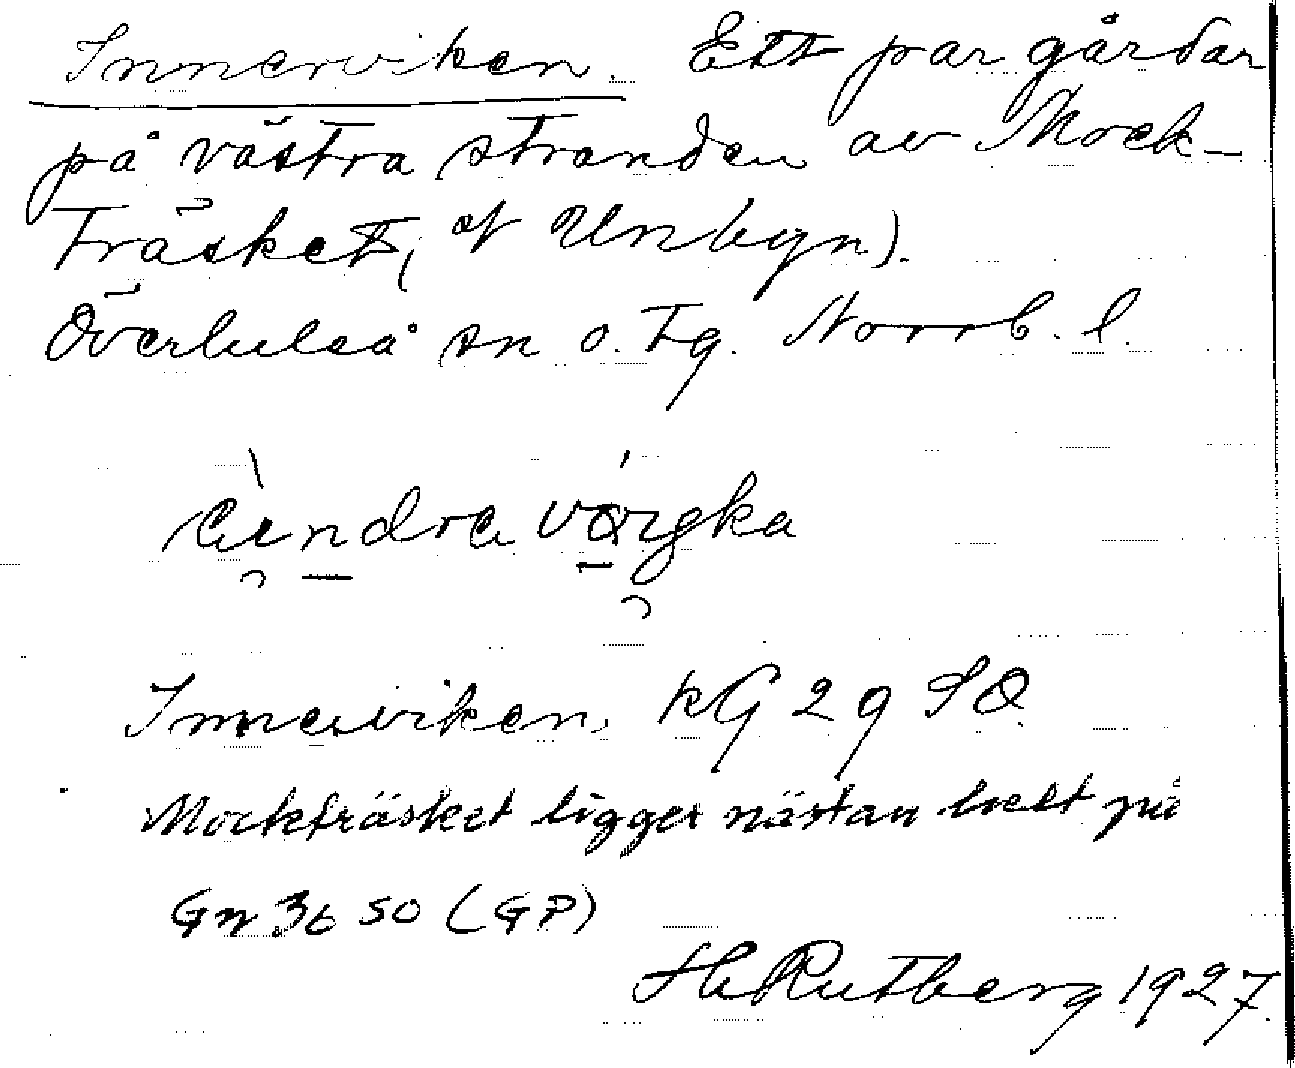 Innerviken. Ett par gårdar
på västra stranden av Mock-
träsket, (t Unbyn).
Överluleå sn o. tg. Norrb. l.
Innerviken. KG 29 SO
Mockträsket ligger nästan helt på
Gn 36 SO (GP)
H Rutberg 1927.